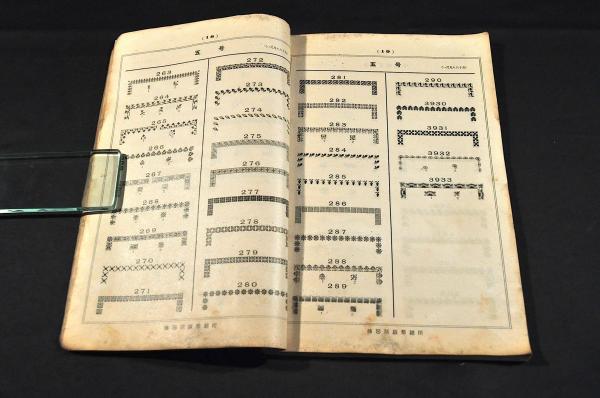 (18)
五号
263
264
265
266
267
268
269
270
271
272
273
274
275
276
277
278
279
280
(19)
五号
281
282
283
284
285
286
287
288
289
290
3930
3931
3932
3933